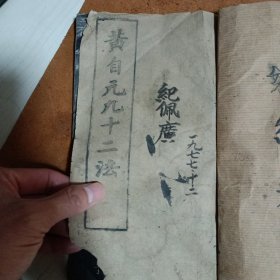 黄自元九十二法
紀佩廣
一九七七十二